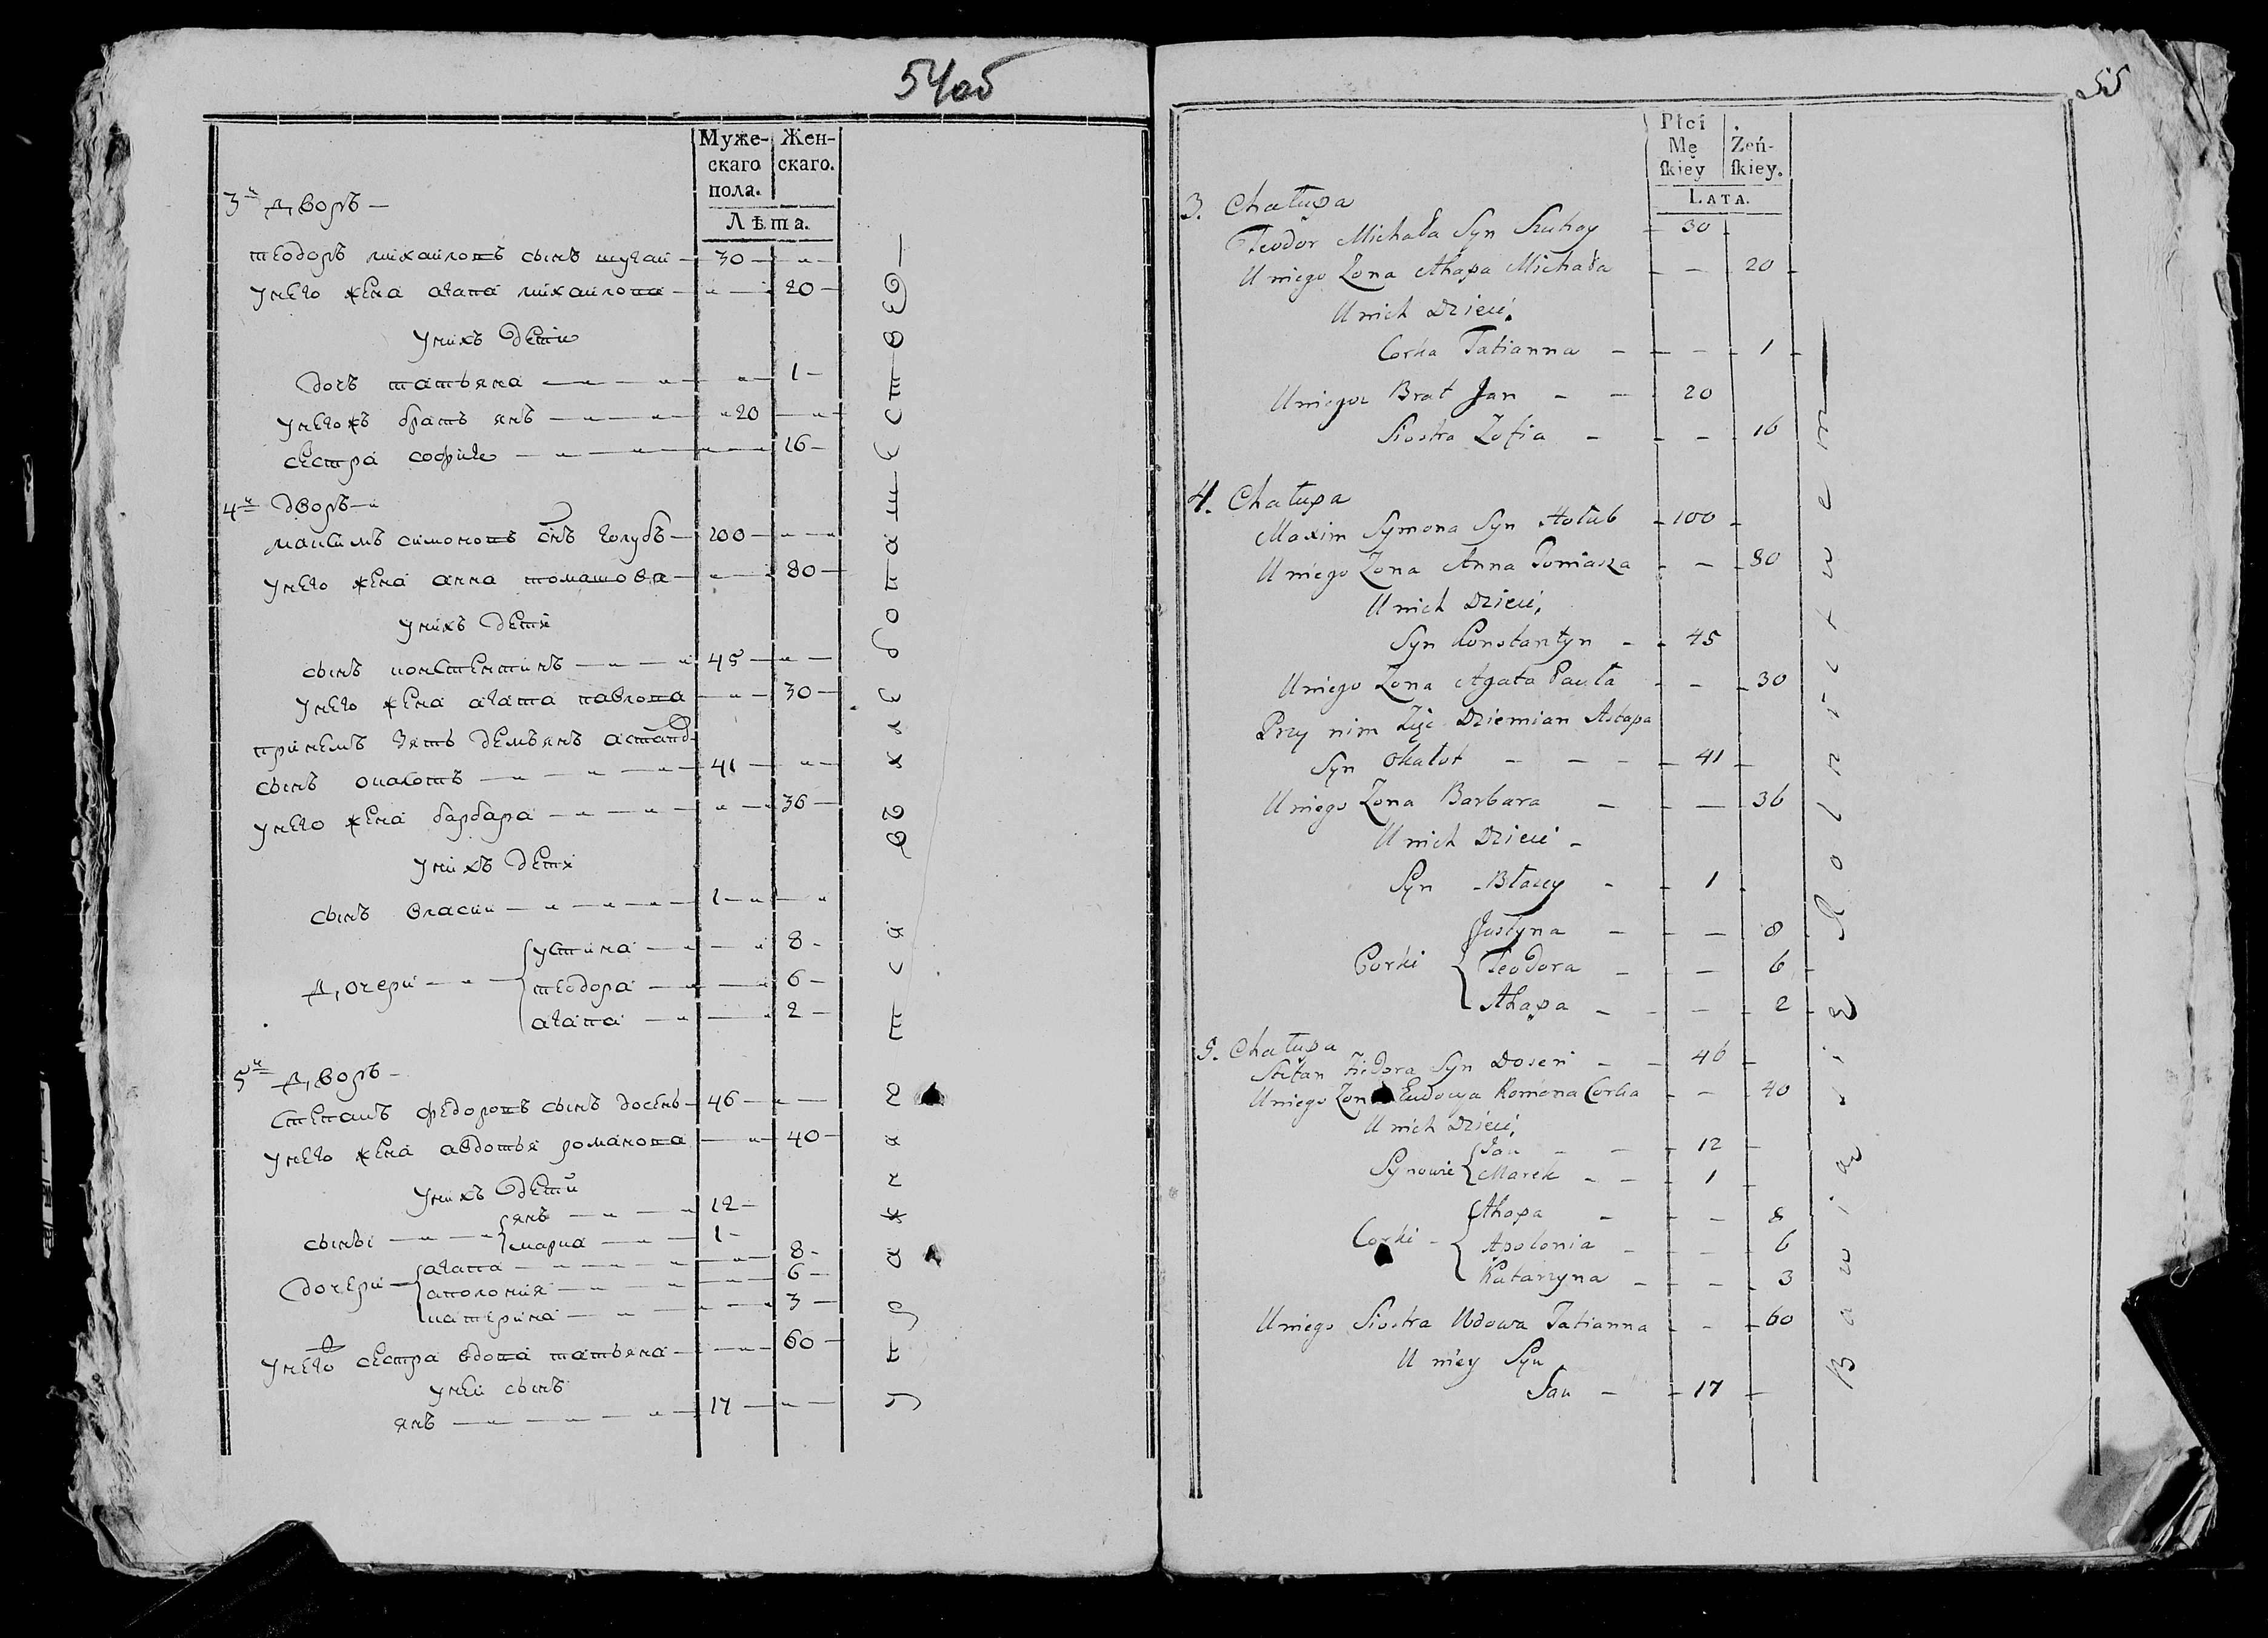 54об
Муже-
скаго
пола.
Жен-
скаго.
Лѣта.
3й Дворъ —
теодоръ михаиловъ сынъ шугаи — 30 — „ —
унего жена агапа михаилова — „ — 20 —
унихъ дети
дочъ татьяна — „ — „ — „ — 1 —
унегожъ братъ янъ — „ — „ — „ 20 — „ —
сестра софия — „ — „ — „ — 16 —
4й дворъ — „
максимъ симоновъ снъ голубъ — 100 — „ —
унего жена анна томашова — „ — 80 —
унихъ дети
сынъ констентинъ — „ — „ 45 — „ —
унего жена агата павлова — „ — 30 —
принемъ зять демъянъ астапо
сынъ окалотъ — „ — „ — „ — 41 — „ —
унего жена барбара — „ — „ — „ — 36 —
унихъ дети
сынъ власии — „ — „ — „ — 1 — „ — „
Дочери — „ — устина — „ — „ 8 -
теодора — „ — „ 6 -
агапа — „ — „ 2 -
5й Дворъ —
Степанъ федоровъ сынъ досень — 46 — „ —
унего жена авдотья романова — „ — 40 —
унихъ дети
сынъі — „ — янъ — „ — „ — 12 —
марка — „ — „ 1 —
дочери — агапа — „ — „ — 8 -
аполония — „ — „ — 6 —
катерина — „ — „ — 3 —
унего сестра вдова татьяна — „ — 60 —
уней сынъ
янъ — „ — „ — „ — 17 — „ —
упражняется въ хлебопашестве —
55
Płci
Mę
ſkiey
Żeń-
ſkiey.
LATA.
3. Chałupa
Teodor Michała Syn Szuhay - 30 -
Uniego Zona Ahapa Michała - - 20 -
Unich Dzieci.
Corka Tatianna - - - 1 -
Uniegoz Brat Jan - - 20
Siostra Zofia - - - 16
4. Chałupa
Maxim Symona Syn Hołub - 100 -
Uniego Zona Anna Tomasza - - 80
Unich Dzieci,
Syn Konstantyn - - 45
Uniego Zona Agata Pauła - - 30
Przy nim Zięc Dziemian Astapa
Syn Okałot - - - 41 -
Uniego Zona Barbara - - - 36
Unich Dzieci -
Syn - Błazey - - 1 -
Corki Justyna - - - 8
Teodora - - 6 -
Ahapa - - - 2 -
5. Chałupa
Stefan Fiedora Syn Doseń - - 46 -
Uniego Zona Eudowja Romana Corka - - 40
Unich Dzieci,
Synowie Jan - - 12 -
Marek - - 1 -
Corki - Ahapa - - - 8
Apolonia - - - 6
Katarzyna - - - 3
Uniego Siostra Wdowa Tatianna - - 60
U niey Syn
Jan - - 17 -
Bawią się Rolnictwem —